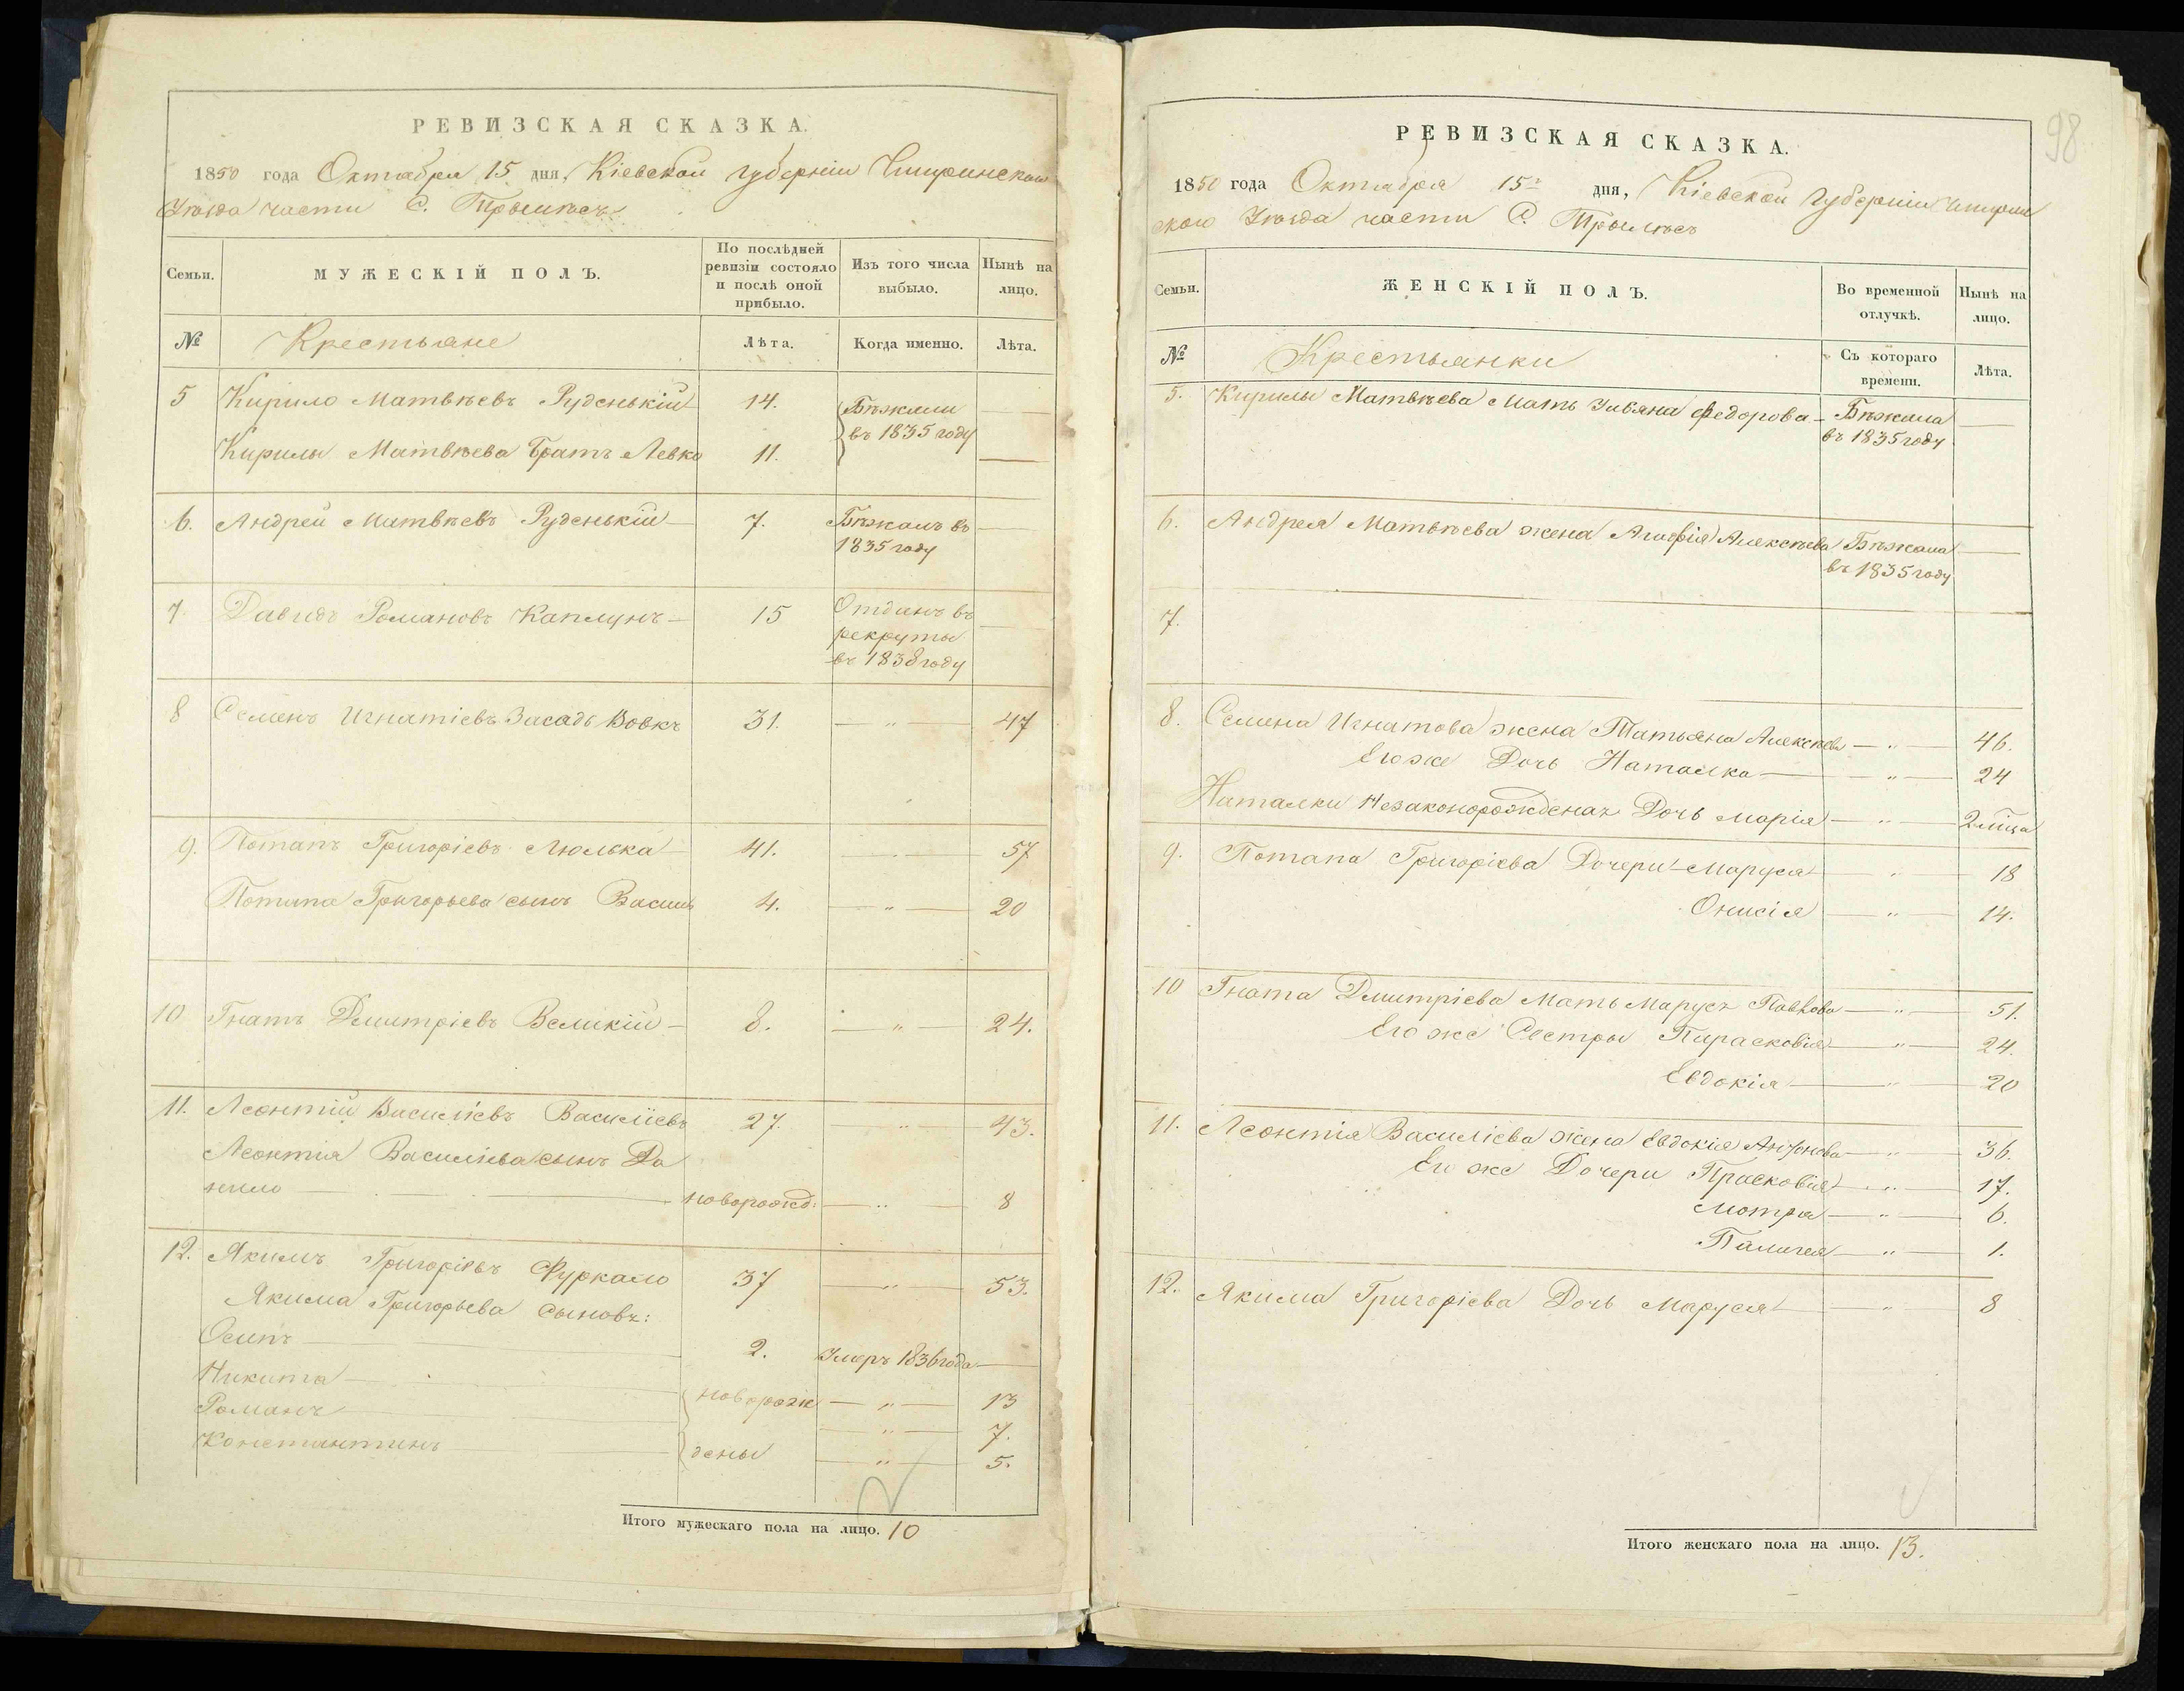 РЕВИЗСКАЯ СКАЗКА.
1850 года Октября 15 дня, Кіевской губерніи Чигринскаго
Уѣзда части С. Трылѣсъ
Семьи.
МУЖЕСКІЙ ПОЛЪ.
По послѣдней ревизіи состояло и послѣ оной прибыло.
Изъ того числа выбыло.
Нынѣ на лицо.
№ Крестьяне Лѣта. Когда именно. Лѣта.
5 Кирило Матвѣевъ Руденькій 14. Бѣжали —
въ 1835 году
Кирилы Матвѣева Братъ Левко 11. —
6. Андрей Матвѣевъ Руденькій — 7. Бѣжалъ въ —
1835 году
7. Давидъ Романовъ Каплунъ — 15 Отданъ въ —
рекруты
въ 1838 году
8 Семенъ Игнатіевъ Засадь Вовкъ 31. — " — 47
9. Потапъ Григоріевъ Люлька 41. — " — 57
Потапа Григорьева сынъ Василь 4. — " — 20
10 Гнатъ Дмитріевъ Великій — 8. — " — 24.
11. Леонтій Василіевъ Василіевъ 27. — " — 43.
Леонтія Василіева сынъ Да
нило — новорожд: — " — 8
12. Якимъ Григоріевъ Фуркало 37 — " — 53.
Якима Григорьева Сыновъ:
Осипъ — 2. Умеръ 1836 года —
Никита — новорож — " — 13
Романъ — " — 7.
Константинъ — дены — " — 5.
Итого мужескаго пола на лицо. 10
98
РЕВИЗСКАЯ СКАЗКА.
1850 года Октября 15го дня, Кіевской Губерніи Чигрин
скаго Уѣзда части С. Трылѣсъ
Семьи.
ЖЕНСКІЙ ПОЛЪ.
Во временной отлучкѣ.
Нынѣ на лицо.
№ Крестьянки Съ котораго времени. Лѣта.
5. Кирилы Матвѣева Мать Ульяна Федорова — Бѣжала —
въ 1835 году
6. Андрея Матвѣева жена Агафія Алексѣева Бѣжала —
въ 1835 году
7.
8. Семена Игнатова жена Татьяна Алексѣева — " — 46.
Его же Дочь Наталка — " — 24
Наталки Незаконорожденая Дочь Марія — " — 2 мѣсца
9. Потапа Григоріева Дочери Маруся — " — 18
Онисія — " — 14.
10 Гната Дмитріева Мать Маруся Павлова — " — 51.
Его же Сестры Парасковія — " — 24.
Евдокія — " — 20
11. Леонтія Василіева жена Евдокія Антонова — " — 36.
Его же Дочери Прасковія — " — 17.
Мотря — " — 6.
Палагея — " — 1.
12. Якима Григоріева Дочь Маруся — " — 8
Итого женскаго пола на лицо. 13.